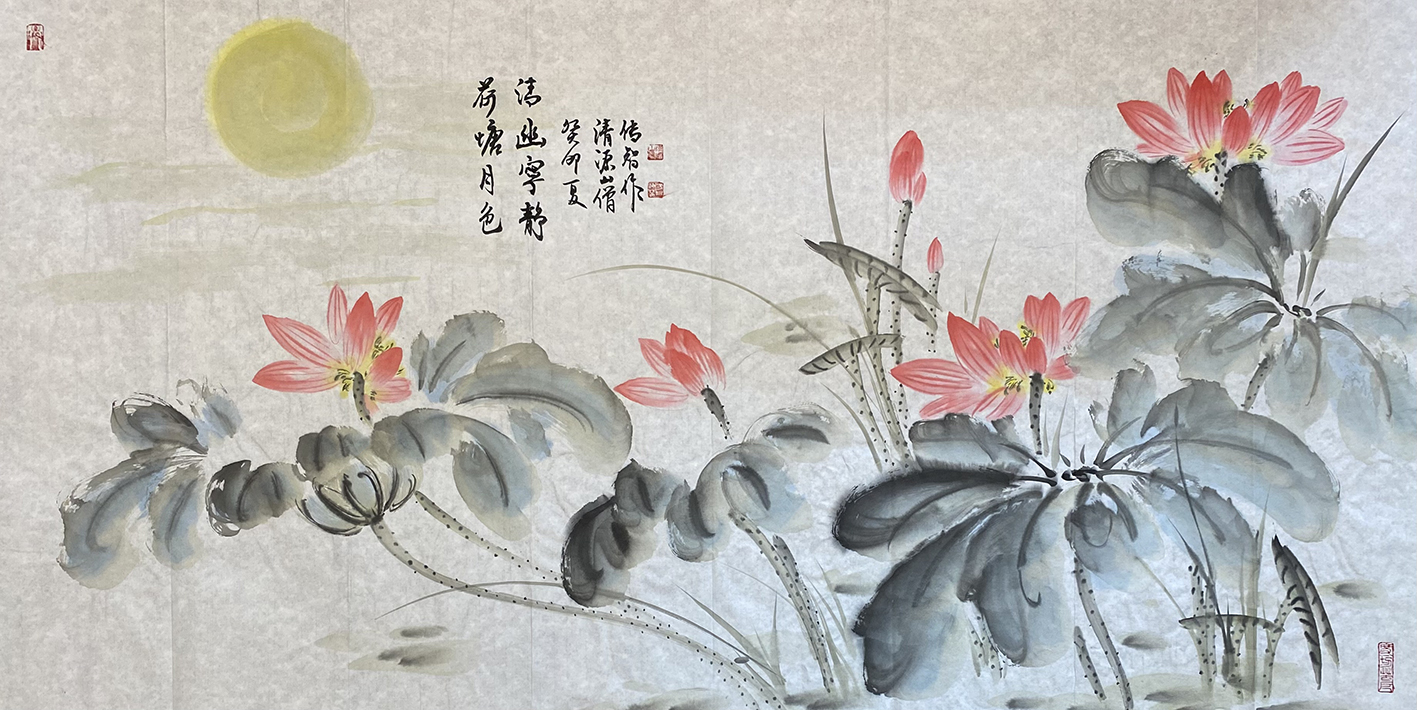 荷塘月色
清幽寧静
癸卯夏
清源山僧
传智作